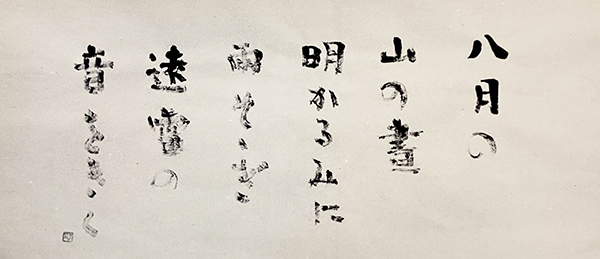 八月の
山の晝
明かるみに
雨そゝぎ
遠雷の
音をきく